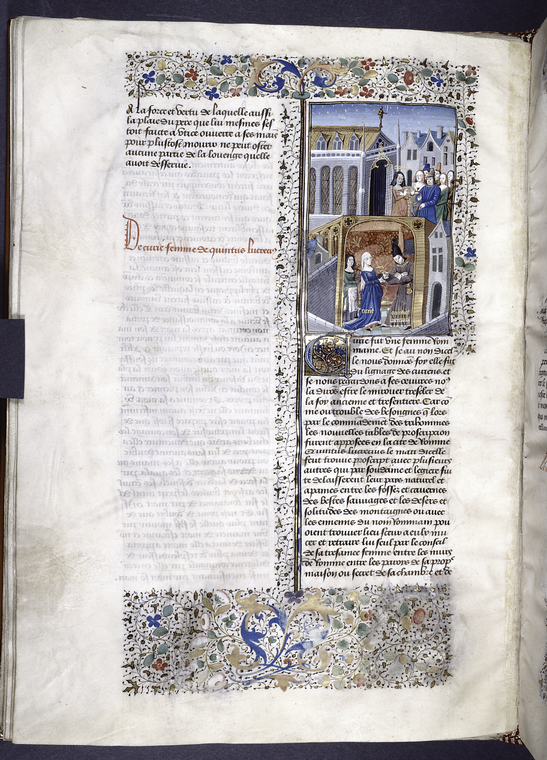 A la force et vertu de laquelle aussi
la plaie du pere que lui mesmes
tout faicte a ouverte a ses mais
pour mourir ne peut oster
aucune partie de la louenge quelle
avoit desservie.
De curie femme de quintus lucreci
Curie fut vne femme Rom
maine. Et se au nom dicel
le nous donnons foy elle fut
du lignage des curiens et
se nous regardons a ses euvres no9
la deuons estre le mirouer de
la foy ancienne et tresentiere. Car co
me ou trouble des besongnes que lors
par le commandement des
les nouvelles tables de proscripcion
furent apposees en la cite de Romme
quintus lucrecius le mari dicelle
feust trouve proscript avec plusieurs
autres qui par soudaine et legiere fui
te delaisserent leur pais naturel et
a paines entre les fosses et cavernes
des bestes sauvages et les deserts et
solitudes des montaignes ou avec
les ennemis du nom Rommain pou
oient trouver lieu seur a eulx mu
cer et retraire lui seul par le conseil
de sa femme entre les murs
de Romme entre les parois de sa propre
maison ou secret de sa chambre et de